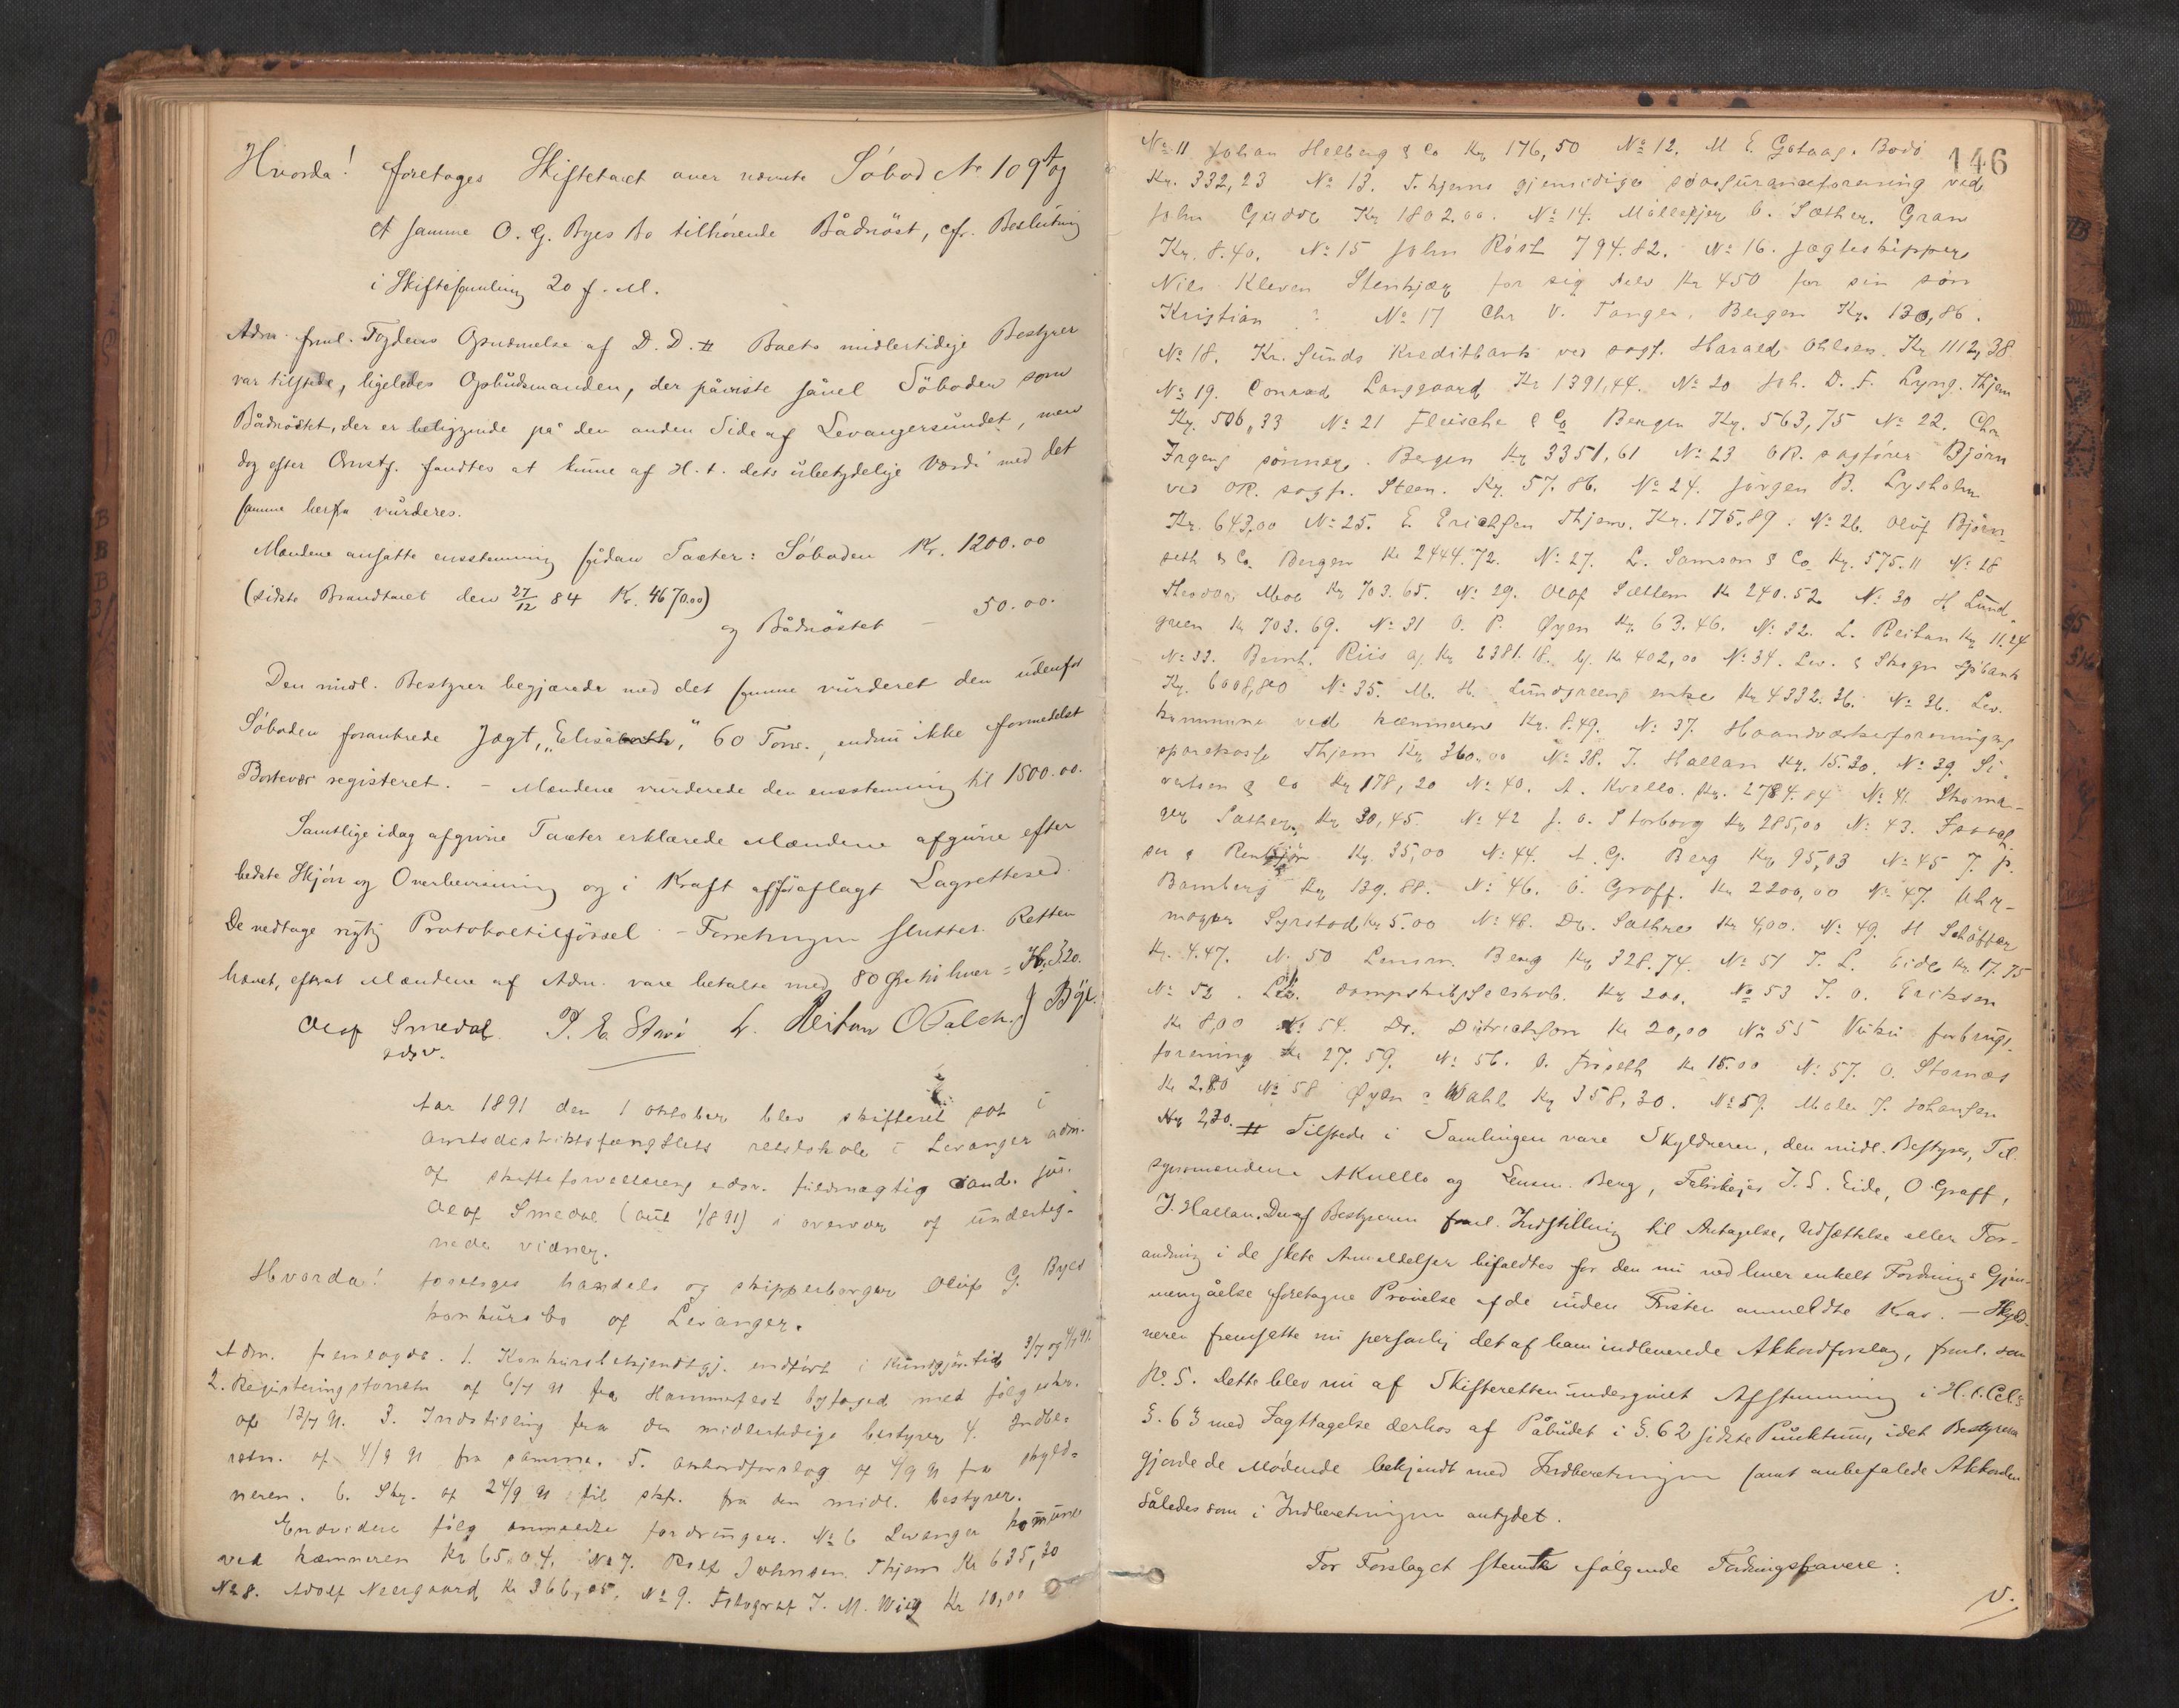 Hvorda! foretoges Skiftetaxt over nævnte Søbod No 109 og
et samme O. G. Byes Bo tilhørende Bådnöst, cfr. Beslutning
i Skiftesamling 20 f. M.
Adm. freml. Fogdens Opnævnelse af D. D. # Boets midlertidige Bestyrer
var tilstede, ligeledes Opbudsmanden, der påviste såvel Söboden som
Bådnöstet, der er beliggende på den anden Side af Levangersundet, men
dog efter Omst. fandtes at kunne af H. t. dets ubetydelige Værdi med det
samme herfra vurderes.
Mændene ansatte ensstemmig sådan Taxter: Söboden Kr. 1200.00
(sidste Brandtaxt den 27/12 84 Kr. 4670.00)
og Bådnöstet - 50.00.
Den midl. Bestyrer begjærede med det samme vurderet den udenfor
Söboden forankrede Jægt, "Elisabeth," 60 Tons, endnu ikke
registeret. - Mændene vurderede den ensstemmig til 1500.00.
Samtlige idag afgivne Taxter erklærede Mændene afgivne efter
bedste Skjön og Overbevisning og i Kraft af før aflagt Lagrettesed.
De vedtage rigtig Protokoltilførsel. - Forretningen sluttet. Retten
hævet, efterat Mændene af Adm. vare betalte med 80 Øre til hver = Kr. 3.20.
Olaf Smedal P. E. Stavö L. Reitan O Falch. J Bye.
edsv.
Aar 1891 den 1 oktober blev skifteret sat i
amtsdistriktsfængslets retslokale i Levanger adm.
af skifteforvalterens edsv. fuldmægtig cand. jur.
Olaf Smedal (aut 1/8 91) i overvær af underteg-
nede vidner.
Hvorda! foretoges handels og skipperborger Oluf G. Byes
konkursbo af Levanger.
Adm. fremlagde. 1. Konkursbekjendtgj. indført i Kundgjør. tid 3/7 og 4/7 91.
2. Registreringsforretn af 6/7 91 fra Hammerfest byfoged med følgeskr.
af 13/7 91. 3. Indstilling fra den midlertidige bestyrer 4. Indbe-
retn. af 4/9 91 fra samme. 5. akkordforslag af 4/9 91 fra skyld-
neren. 6. Skr. af 24/9 91 til skfr. fra den midl. bestyrer.
Endvidere følg anmeldte fordringer. No 6 Levanger komunes
ved kæmneren Kr 65.04. No 7. Rolf Johnsen Thjem Kr 635,30
No 8. Adolf Neergaard Kr 366,05. No 9. Fotograf J. M. Wiig Kr 10,00
146
No 11 Johan Helberg & Co Kr 176,50 No 12. M E Bodö
Kr. 332,23 No 13. T.hjems gjensidige søassuranceforening ved
John Gudde Kr 1802.00. No 14. Sæther. Gran
Kr. 8.40. No 15 John Röst 794.82. No 16. Jægteskipper
Nils Kleven Stenkjær for sig selv Kr 450 for sin søn
Kristian ? No 17 Chr V. Tangen. Bergen Kr. 130,86.
No 18. Kr. Sunds Kreditbank ved sagf. Harald Ohlsen. Kr 1112,38
No 19. Conrad Langgaard Kr 1391,44. No 20 Joh. D. F. Lyng. Thjem
Kr. 506,33 No 21 Flesche & Co Bergen Kr. 563,75 No 22. Chr
Irgens sønner. Bergen Kr 3351,61 No 23 OR. sagfører Björn
ved OR. sagfr. Steen. Kr. 57.86. No 24. Jörgen B. Lysholm
Kr. 643,00 No 25. E. Erichsen Thjem. Kr. 175.89. No 26. Oluf Björn-
seth & Co. Bergen Kr 2444.72. No 27. L. Samson & Co Kr. 575.11 No 28
Theodor Moe Kr 703.65. No 29. Olof Sællem Kr 240.52 No 30 H. Lund-
green Kr 703.69. No 31 O. P. Øyen Kr. 63.46. No 32. L. Reitan Kr 11.24
No 33. Bernt. Riis a) Kr 2381.18. b) Kr 402,00 No 34. Lev. & Skogn spbank
Kr. 6008,80 No 35. M. H. Lundgreens enke Kr 4332.36. No 36. Lev.
kommune ved kæmneren Kr. 8.49. No 37. Haandværkerforeningens
sparekasse Thjem Kr 360,00 No 38. J. Hallan Kr. 15.20. No 39. Si-
vertsen & Co Kr 178,20 No 40. A. Kvello. Kr. 2784.84 No 41. Skoma-
ger Sæther. Kr 30,45 No 42 J. O. Storborg Kr 285,00 No 43.
Kr. 35,00 No 44. A. G. Berg Kr 95,03 No 45 J. P.
Bamberg Kr 139.88. No 46. O. Graff. Kr 2200,00 No 47. Uhr-
mager Syrstad Kr 5.00 No 48. Dr. Sæthre Kr 4,00. No 49. H Schäffer
Kr. 4.47. No 50 Lensm. Berg Kr 328.74. No 51 J. L. Eide Kr. 17.75
No 52. Lev. dampskibsselskab. Kr 200. No 53 J. O. Eriksen
Kr 8,00 No 54. Dr. Ditrichson Kr 20,00 No 55 Vuku forbrugs-
forening Kr 27.59. No 56. O. Kr 15.00 No 57. O. Stornæs
Kr 2.80 No 58 Øyen & Wahl Kr 358,30. No 59. Maler J. Johansen
Kr 2,30. # Tilstede i Samlingen vare Skyldneren, den midl. Bestyrer, Til-
synsmændene AKvello og Lensm. Berg, J. S. Eide, O Graff,
J. Hallan. Den af Bestyreren freml. Indstilling til Antagelse, Udsættelse eller For-
andring i de skete Anmeldelser bifaldtes for den nu ved hver enkelt Fordrings Gjen-
nemgåelse foretagne Prövelse af de inden Fristen anmeldte Krav. - Skyld-
neren fremsatte nu personlig det af ham indleverede Akkordforslag, freml. som
No. 5. Dette blev nu af Skifteretten undergivet Afstemning i H. t. Ccl.s
§. 63 med Iagttagelse derhos af Påbudet i §. 62 sidste Punktum, idet Bestyreren
gjorde de Mødende bekjendt med Indberetningen samt anbefalede Akkorden
således som i Indberetningen antydet.
For Forslaget stemte følgende Fordringshavere:
V.